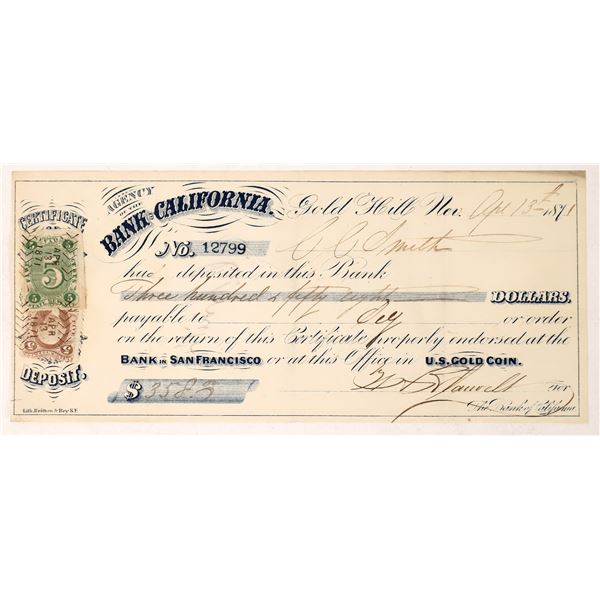 CERTIFICATE
OF
DEPOSIT.
AGENCY
OF THE
BANK OF CALIFORNIA.
Gold Hill Nev. Apl 13th 1871
No. 12799
C C Smith
has deposited in this Bank
Three hundred & fifty eight DOLLARS.
payable to or order
on the return of this Certificate properly endorsed at the
BANK IN SAN FRANCISCO or at this Office in U.S. GOLD COIN.
$ 358.
for
The Bank of California
Lith. Britton & Rey S.F.
5
5
5
APR
13
1871
5
5
APR